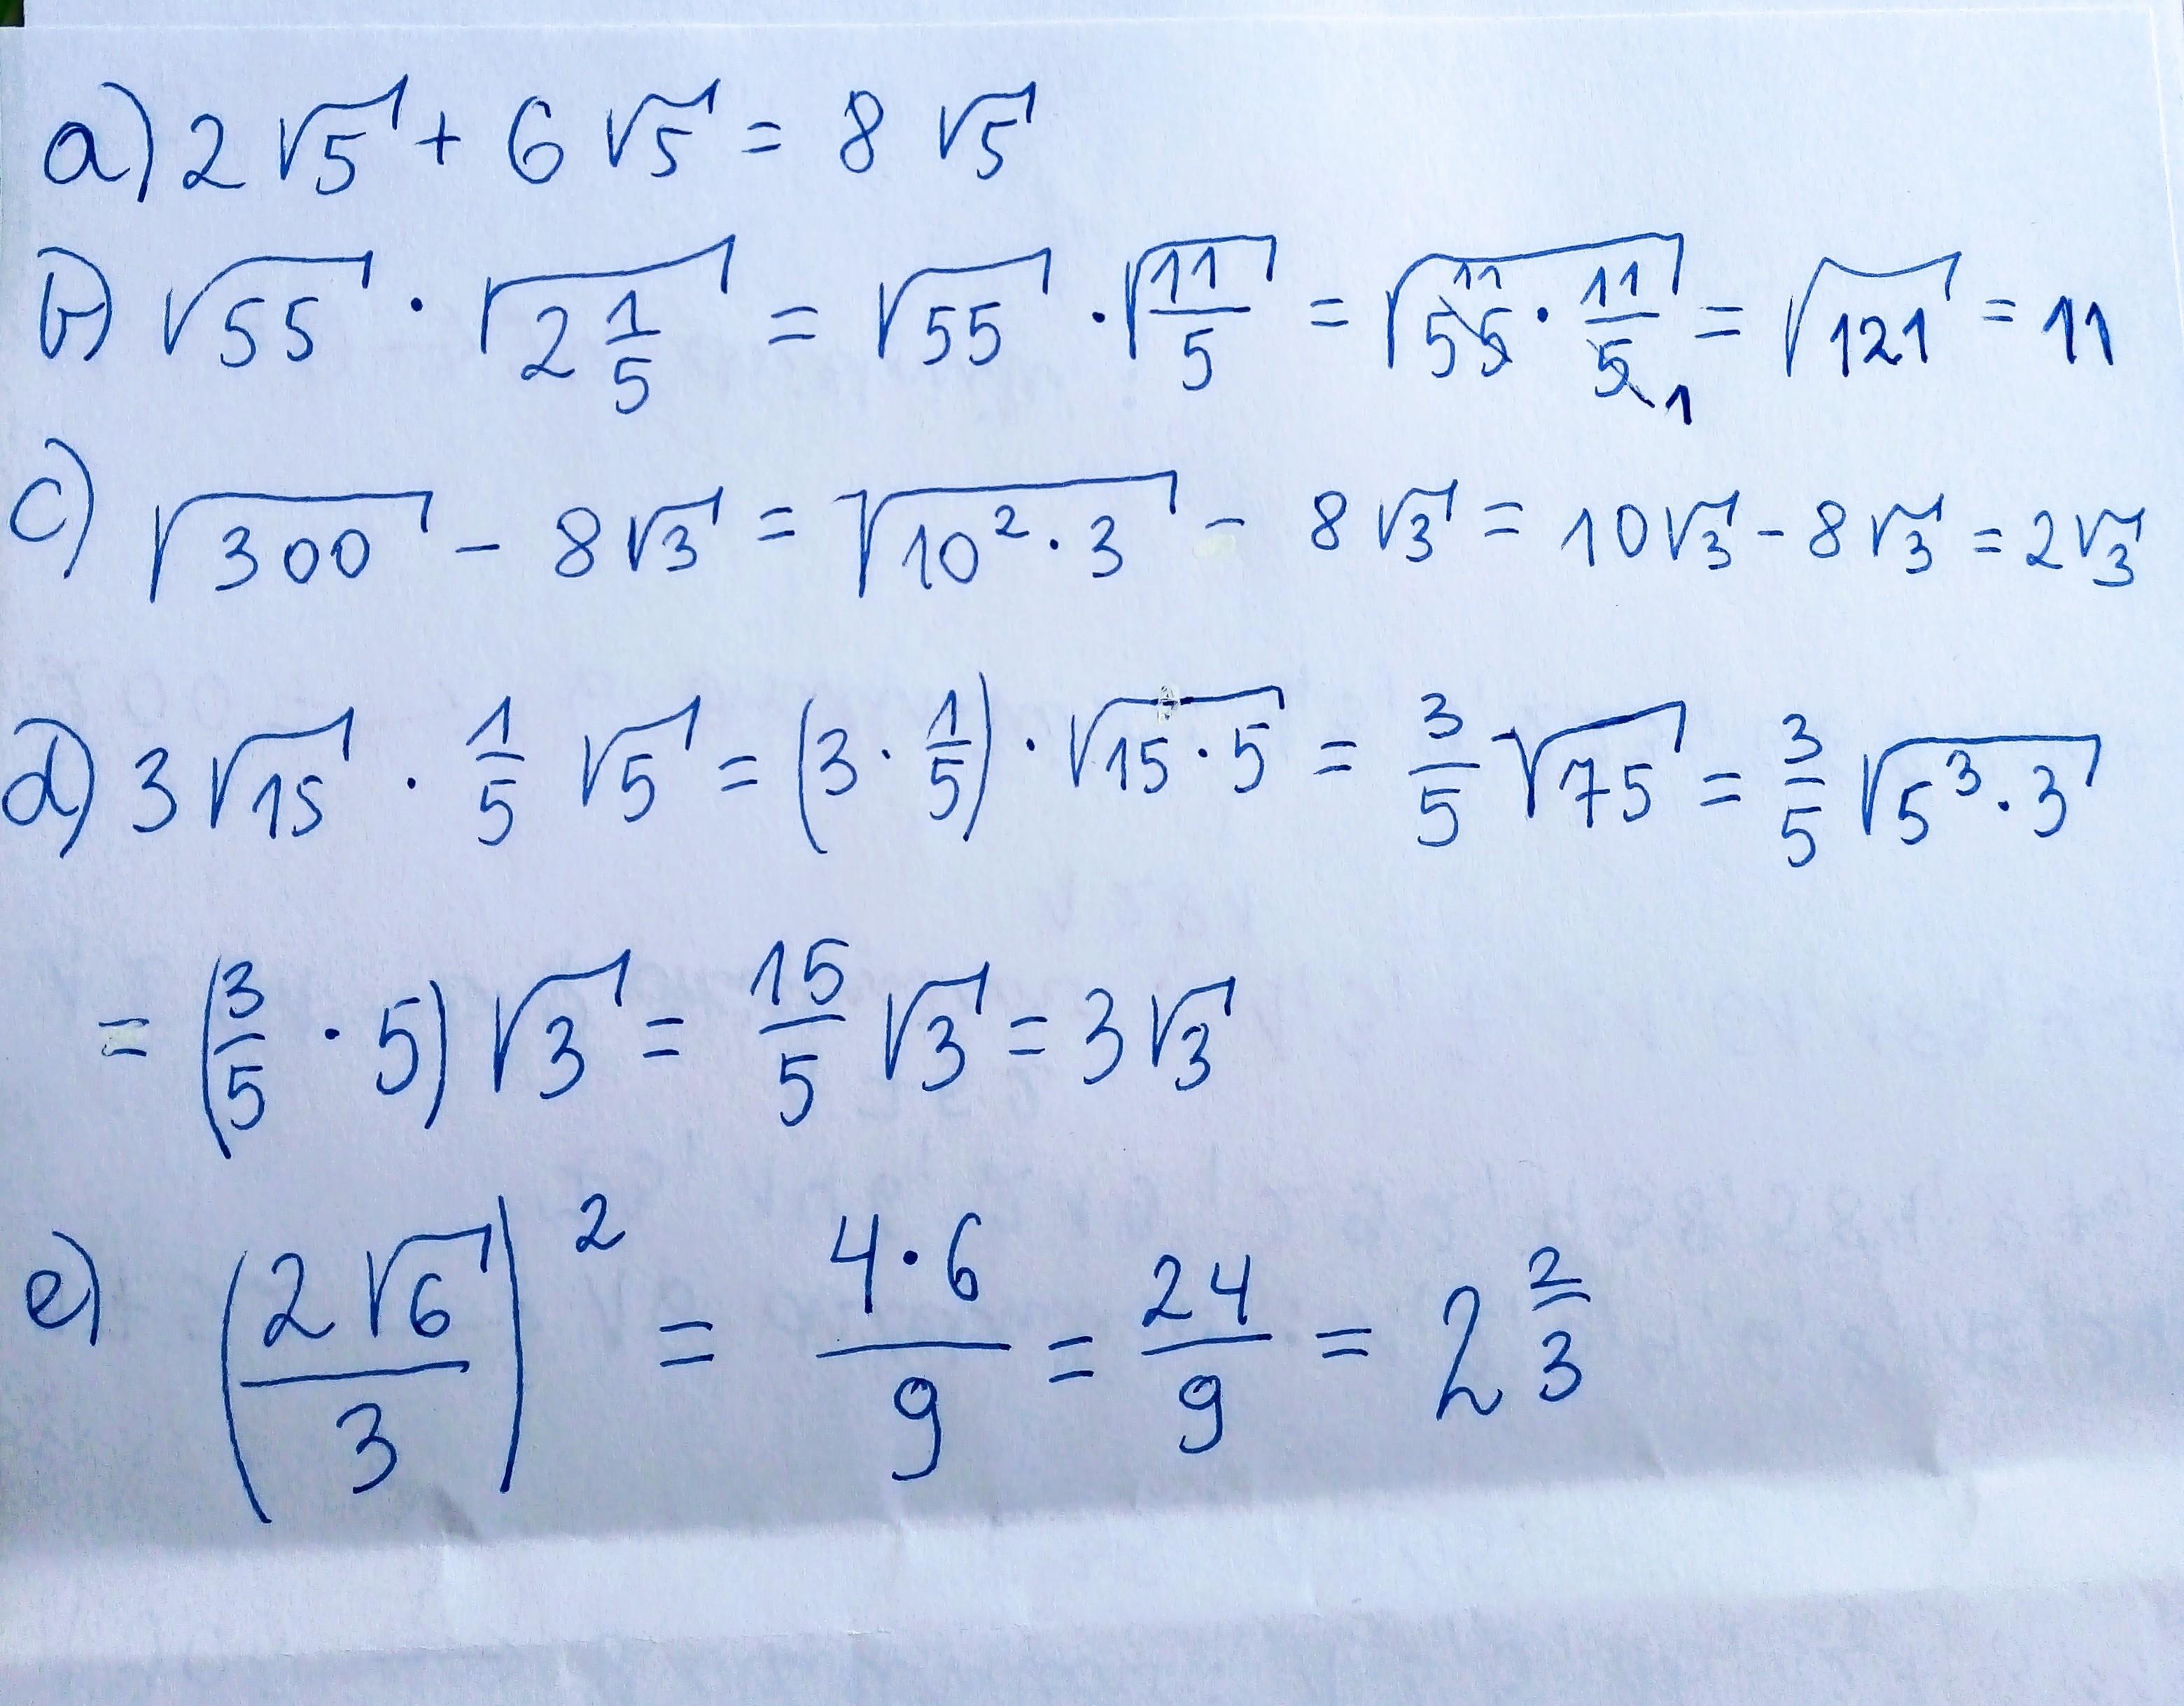 a) 2√5 + 6√5 = 8√5
b) √55 · √(2 1/5) = √55 · √(11/5) = √(55 11 · 11/5 1) = √121 = 11
c) √300 - 8√3 = √(10² · 3) - 8√3 = 10√3 - 8√3 = 2√3
d) 3√15 · 1/5 √5 = (3 · 1/5) · √(15 · 5) = 3/5 √75 = 3/5 √(5³ · 3)
= (3/5 · 5) √3 = 15/5 √3 = 3√3
e) (2√6/3)² = 4·6/9 = 24/9 = 2 2/3